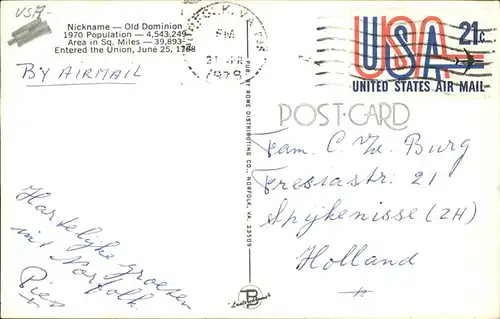 USA
Nickname — Old Dominion
1970 Population — 4,543,249
Area in Sq. Miles — 39,893
Entered the Union, June 25, 1788
BY AIRMAIL
NORFOLK, VA
PM
1979
USA 21c
UNITED STATES AIR MAIL
POST CARD
PUB. BY ROWE DISTRIBUTING CO., NORFOLK, VA. 23509
Fam. C. W. Burg
Fresiastr: 21
Spijkenisse (ZH)
Holland
Hartelijke groeten
uit Norfolk
Piet